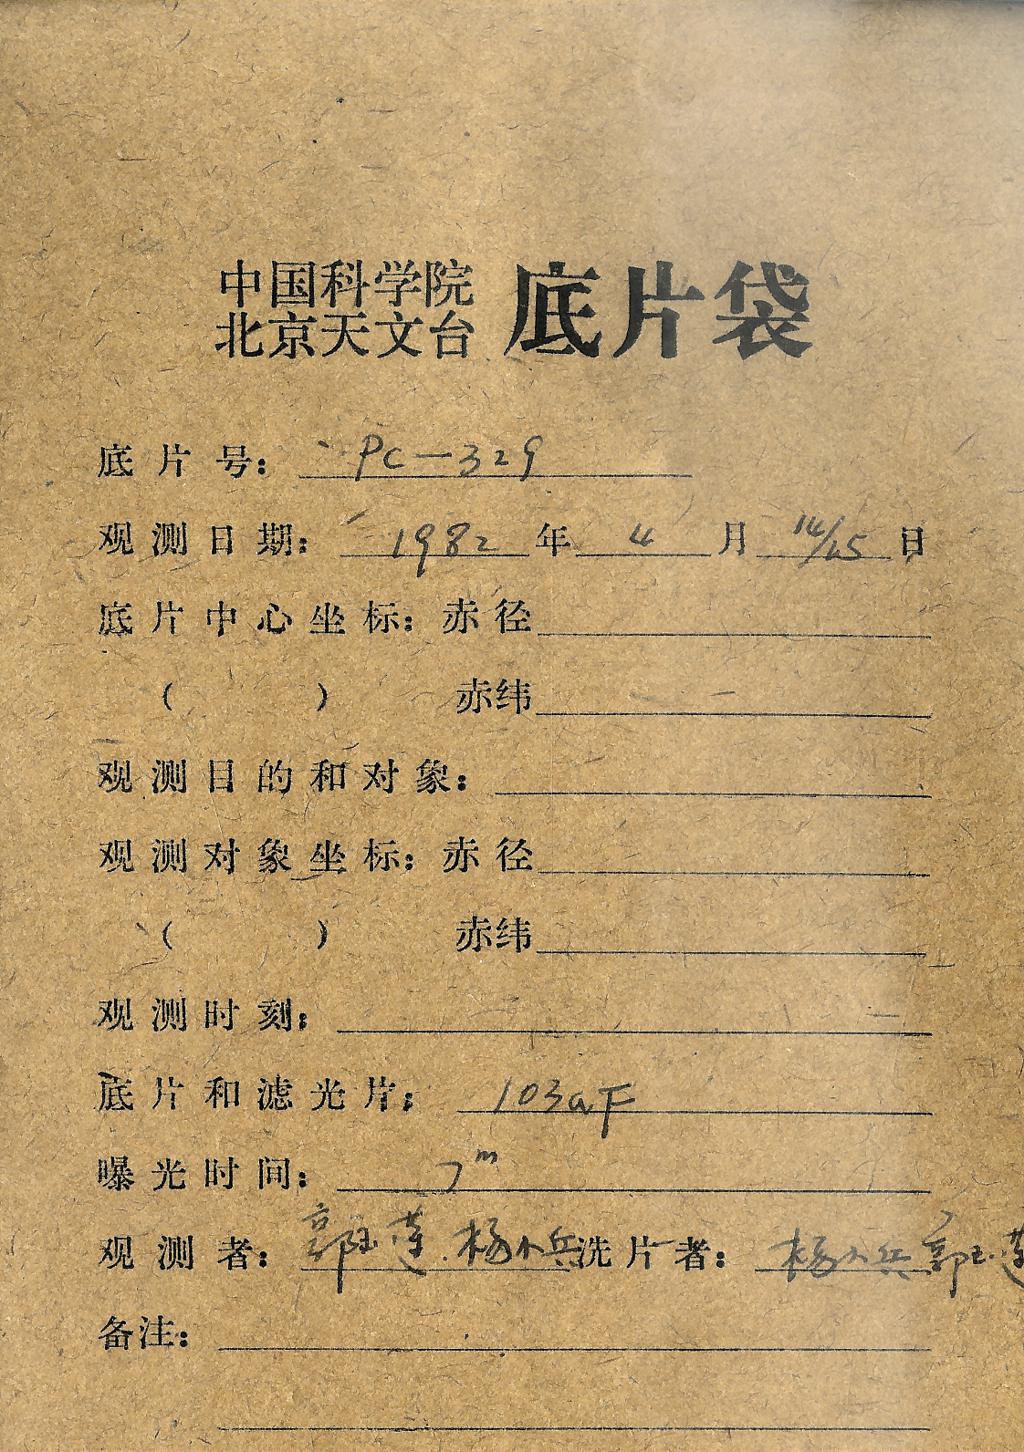 中国科学院
北京天文台 底片袋
底片号: PC-329
观测日期: 1982年4月14/15日
底片中心坐标:赤径
( ) 赤纬
观测目的和对象:
观测对象坐标:赤径
( ) 赤纬
观测时刻:
底片和滤光片: 103aF
曝光时间: 7m
观测者: 郭玉莲.杨小兵 洗片者: 杨小兵 郭玉莲
备注: